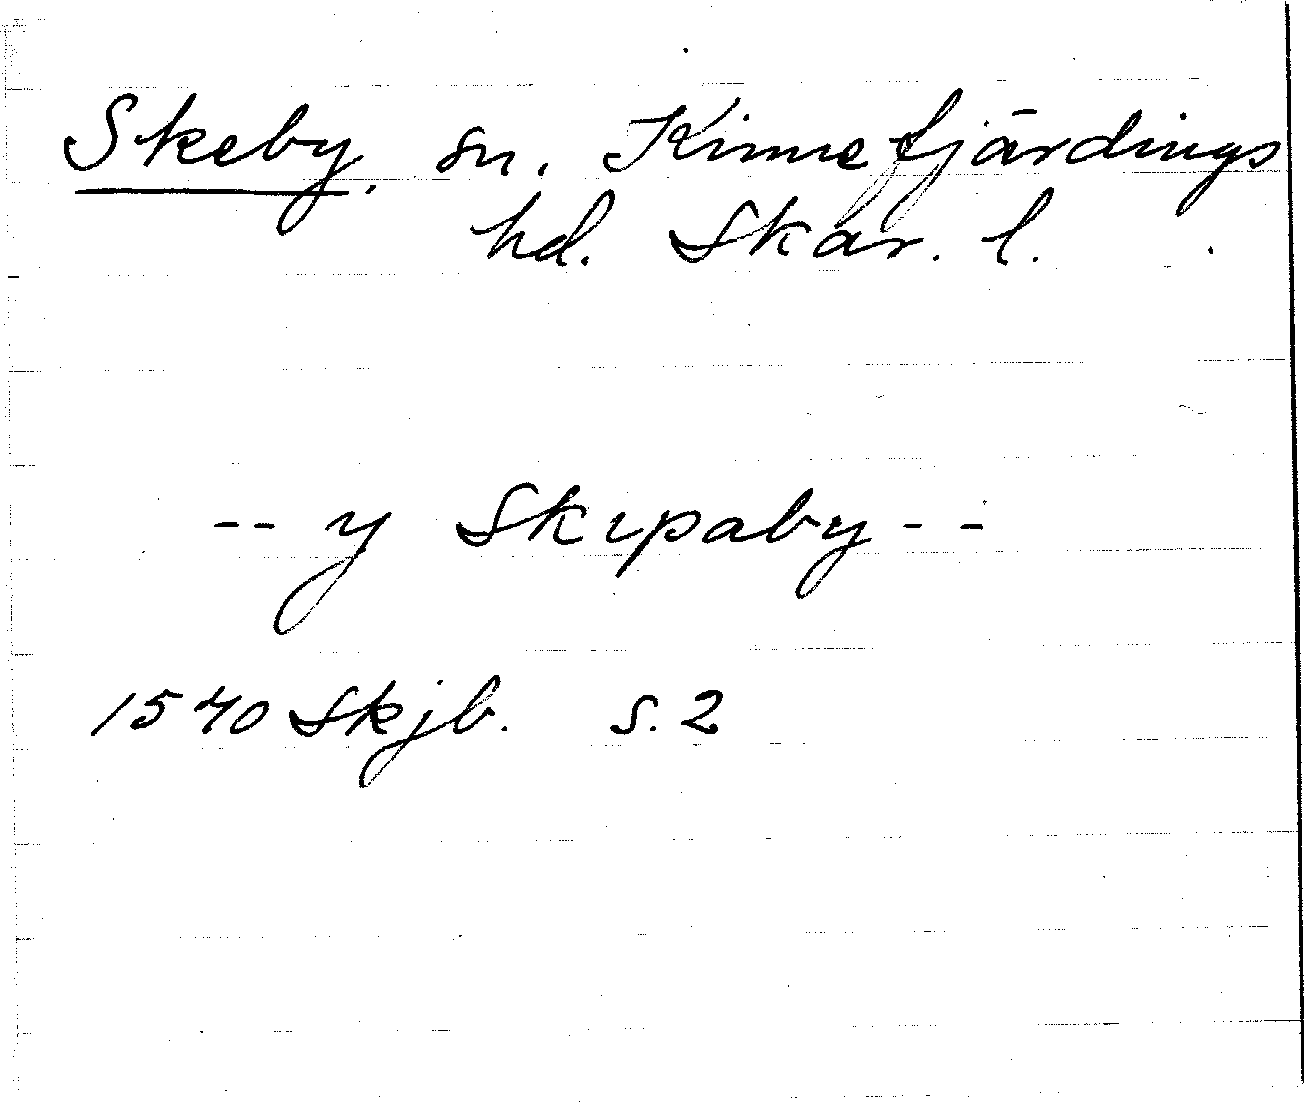 Skeby, sn. Kinnefjärdings
hd. Skar. l.
-- y Skipaby --
1540 Skjb. s. 2